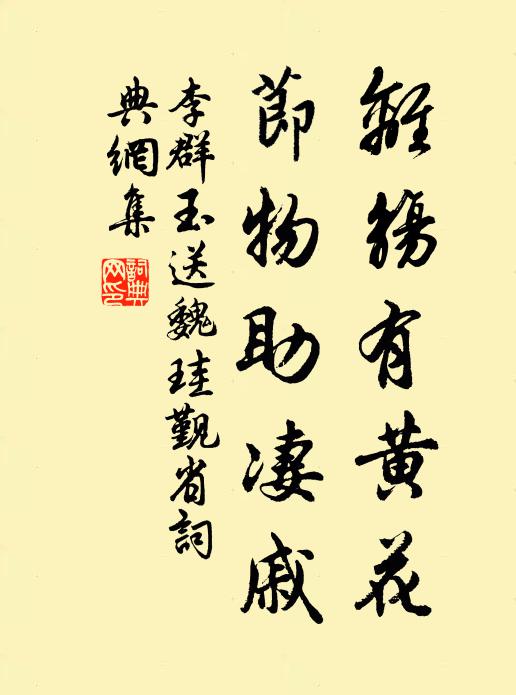 離觴有黃花
節物助凄戚
李群玉送魏珪覲省詞
典網集
詞典
网印